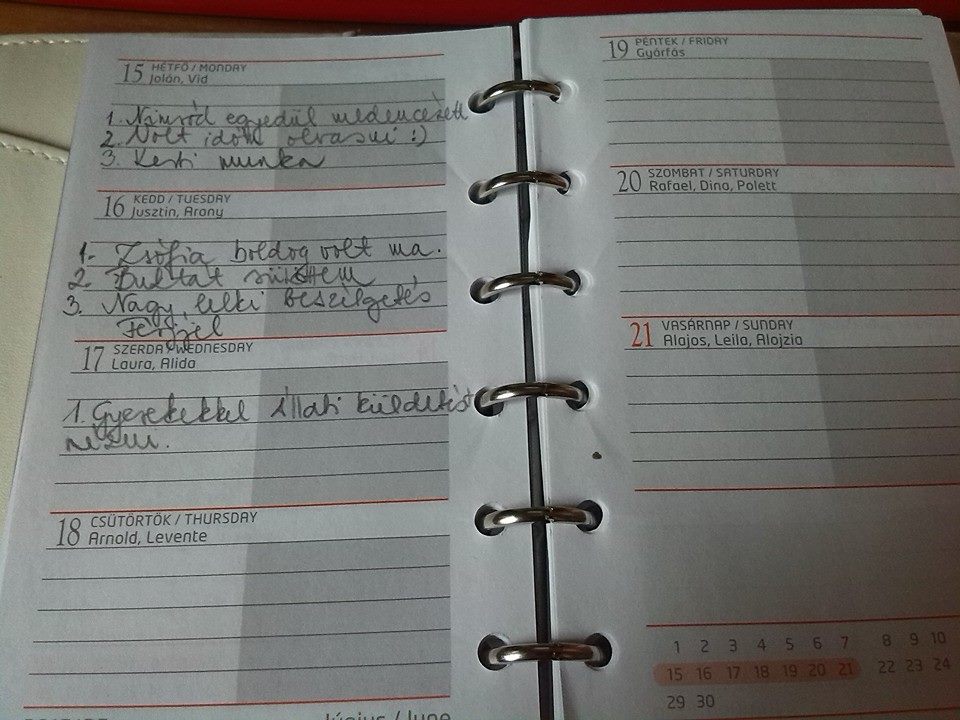 15 HÉTFŐ / MONDAY
Jolán, Vid
1. Nimród egyedül medencézett
2. Volt időm olvasni :)
3. Kerti munka
16 KEDD / TUESDAY
Jusztin, Arany
1. Zsófia boldog volt ma.
2. Buktát sütöttem
3. Nagy, lelki beszélgetés
Férjjel
17 SZERDA / WEDNESDAY
Laura, Alida
1. Gyerekekkel Állati küldetést
nézni.
18 CSÜTÖRTÖK / THURSDAY
Arnold, Levente
Június / June
19 PÉNTEK / FRIDAY
Gyárfás
20 SZOMBAT / SATURDAY
Rafael, Dina, Polett
21 VASÁRNAP / SUNDAY
Alajos, Leila, Alojzia
1 2 3 4 5 6 7 8 9 10
15 16 17 18 19 20 21 22 23 24
29 30